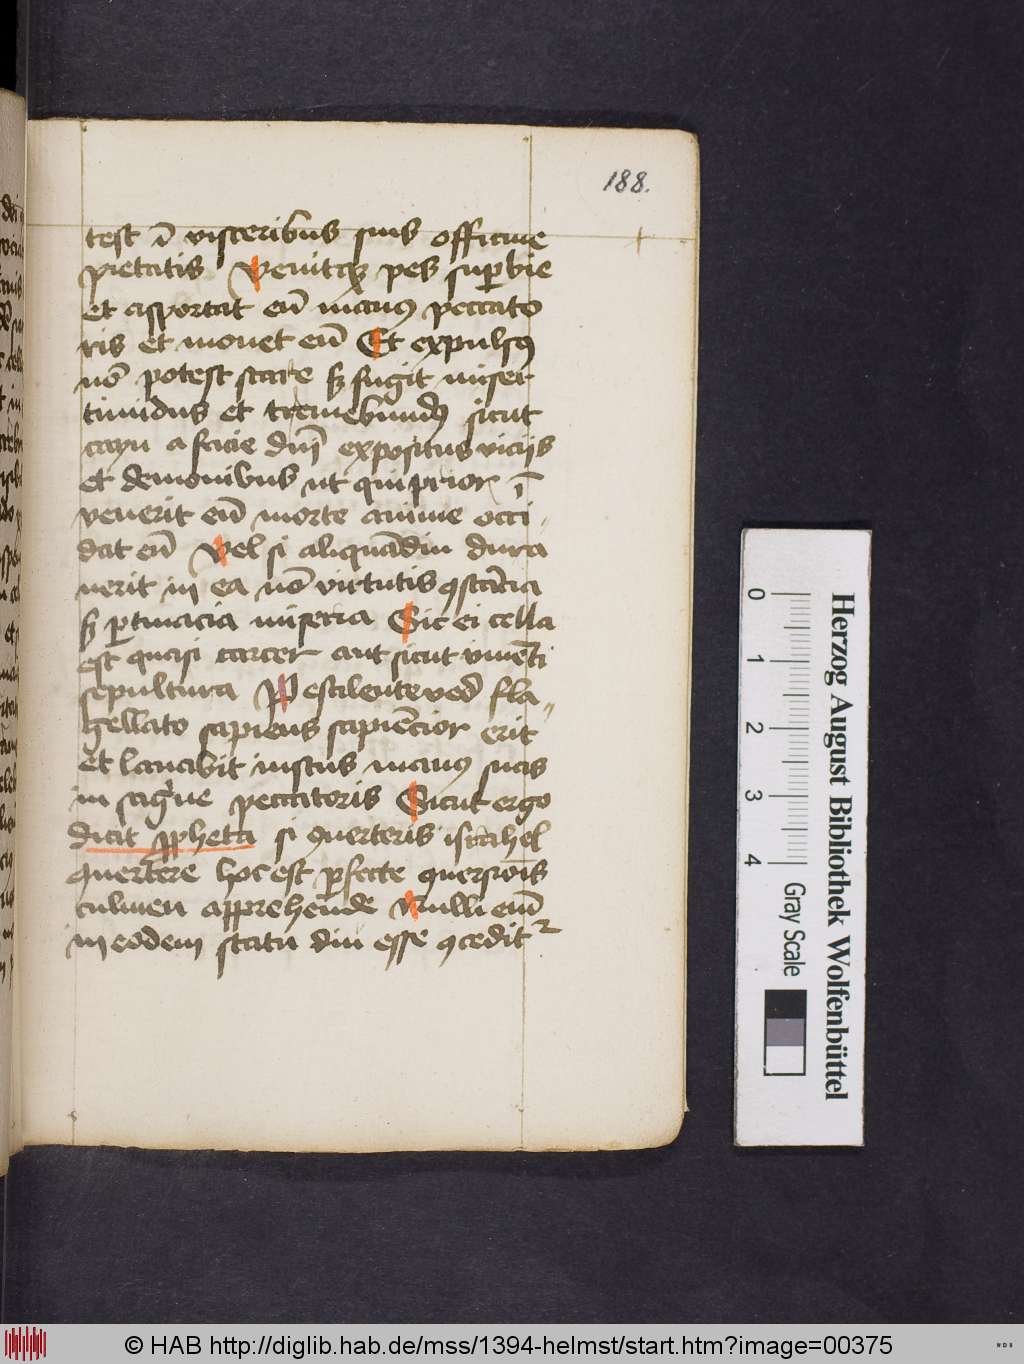 188.
test ī visceribus suis officine
pietatis Venitqꝫ pes suꝑbie
et asportat eū manꝰ peccato
ris et mouet eū Et expulsꝰ
nō potest stare sꝫ fugit miser
timidus et tremebundꝰ sicut
cayn a facie dn̄i expositus viciis
et demonibus ut qui prior ī
venerit eū morte anime occi
dat eū Vel si aliquādiu dura
uerit in ea nō virtutis ꝯstācia
sꝫ ꝑtinacia miseria Sic ei cella
est quasi carcer aut sicut viuēti
sepultura Pestilente ved fla
gellato sapiens sapiēcior erit
et lauabit iustus manꝰ suas
in sāgīne peccatoris Sicut ergo
dicit ꝓpheta si ꝯuerteris israhel
ꝯuertere hoc est ꝑfecte ꝯuersiōis
culmen apprehende Nulli enī
in eodem statu diu esse ꝯcedit
Herzog August Bibliothek Wolfenbüttel
0 1 2 3 4
Gray Scale
© HAB http://diglib.hab.de/mss/1394-helmst/start.htm?image=00375